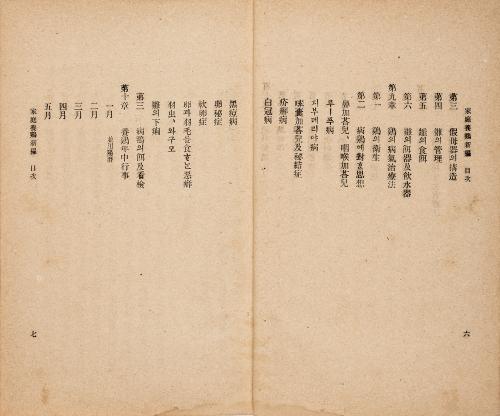 家庭養鷄新編 目次
第三 假母器의 搆造
第四 雛의 管理
第五 雛의 食餌
第六 雛의 餌器及飮水器
第九章 鷄의 病氣治療法
第一 鷄의 衛生
第二 病鷄에 對한 思想
鼻加答兒、咽喉加答兒
루ー푸病
지부데리아病
嗉囊加答兒及秘結症
疥癬病
白冠病
黑痘病
卵秘症
軟卵症
卵과 羽毛를 食하는 惡癖
羽虫、와구모
雛의 下痢
第三 病鷄의 餌及看檢
第十章 養鷄年中行事
一月
二月
三月
四月
五月
六
家庭養鷄新編 目次
七